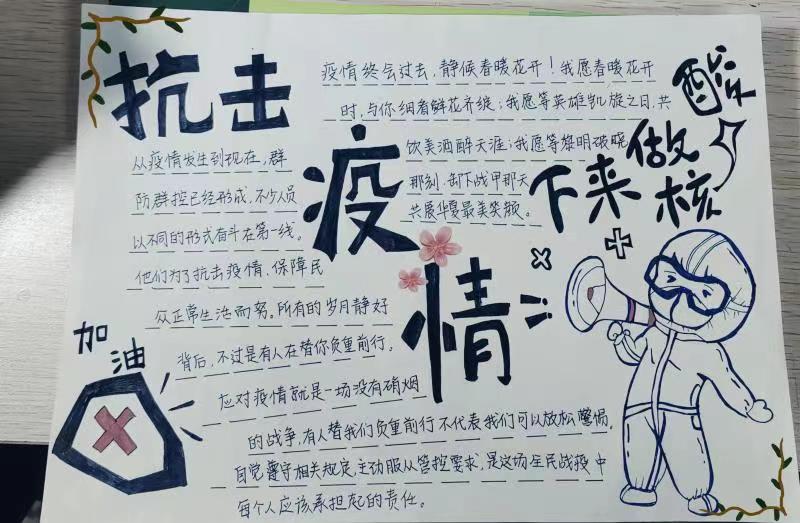 抗击
疫情
疫情终会过去，静候春暖花开！我愿春暖花开
时，与你细看鲜花齐绽；我愿等英雄凯旋之日，共
饮美酒醉天涯；我愿等黎明破晓
那刻，卸下战甲那天
共展华夏最美笑颜。
下来做核酸
从疫情发生到现在，群
防群控已经形成，不少人员
以不同的形式奋斗在第一线。
他们为了抗击疫情、保障民
众正常生活而努。所有的岁月静好
背后，不过是有人在替你负重前行。
应对疫情就是一场没有硝烟
的战争，有人替我们负重前行不代表我们可以放松警惕，
自觉遵守相关规定，主动服从管控要求，是这场全民战疫中
每个人应该承担起的责任。
加油